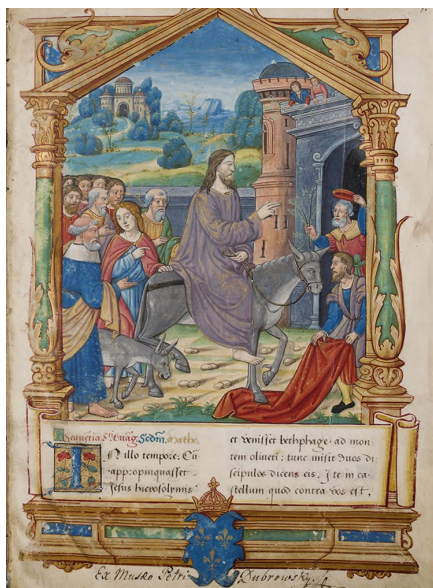 Sequētia s. euāg. Secdm. Mathe.
IN illo tempore. Cū
appropinquasset
Jesus hierosolymis.
et venisset bethphage ad mon
tem oliueti: tunc misit duos di
scipulos dicens eis. Ite in ca
stellum quod contra vos est.
Ex Musæo Petri Dubrowsky.